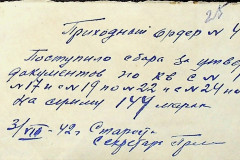 25
Приходный ордер № 4
Поступило сбора за утвер
документов по кв с №
№17 и с №19 по №22 и с №24 по
на сумму 144 марки
31/VIII-42г. Старост
Секретарь